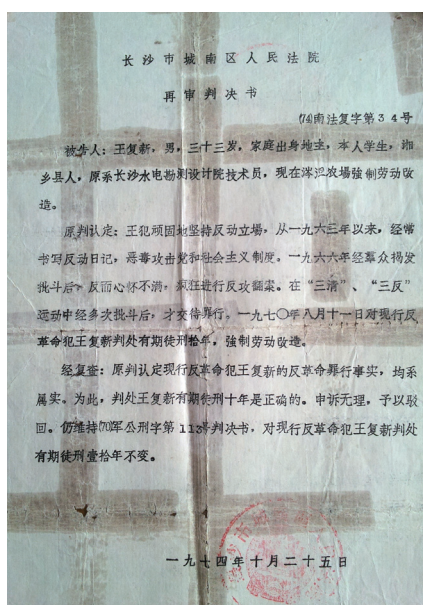 长沙市城南区人民法院
再审判决书
(74)南法复字第34号
被告人：王复新，男，三十三岁，家庭出身地主，本人学生，湘
乡县人，原系长沙水电勘测设计院技术员，现在涔澹农場強制劳动改
造。
原判认定：王犯頑固地坚持反动立場，从一九六三年以来，经常
书写反动日记，恶毒攻击党和社会主义制度。一九六六年经羣众揭发
批斗后，反而心怀不满，疯狂进行反攻翻案。在“三清”、“三反”
运动中经多次批斗后，才交待罪行。一九七〇年八月十一日对现行反
革命犯王复新判处有期徒刑拾年，強制劳动改造。
经复查：原判认定现行反革命犯王复新的反革命罪行事实，均系
属实。为此，判处王复新有期徒刑十年是正确的。申诉无理，予以驳
回。仍维持(70)军公刑字第113号判决书，对现行反革命犯王复新判处
有期徒刑壹拾年不变。
一九七四年十月二十五日